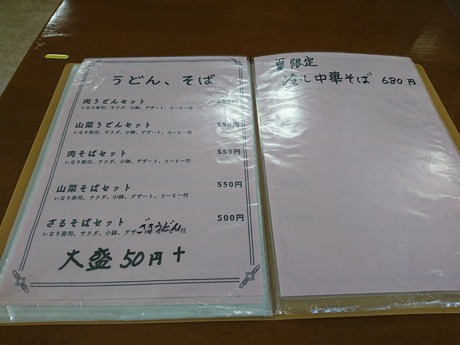 うどん、そば
肉うどんセット 550円
いなり寿司、サラダ、小鉢、デザート、コーヒー付
山菜うどんセット 550円
いなり寿司、サラダ、小鉢、デザート、コーヒー付
肉そばセット 550円
いなり寿司、サラダ、小鉢、デザート、コーヒー付
山菜そばセット 550円
いなり寿司、サラダ、小鉢、デザート、コーヒー付
ざるそばセット 500円
いなり寿司、サラダ、小鉢、デザ 付
ざるうどん
大盛50円+
夏限定
冷し中華そば 680円